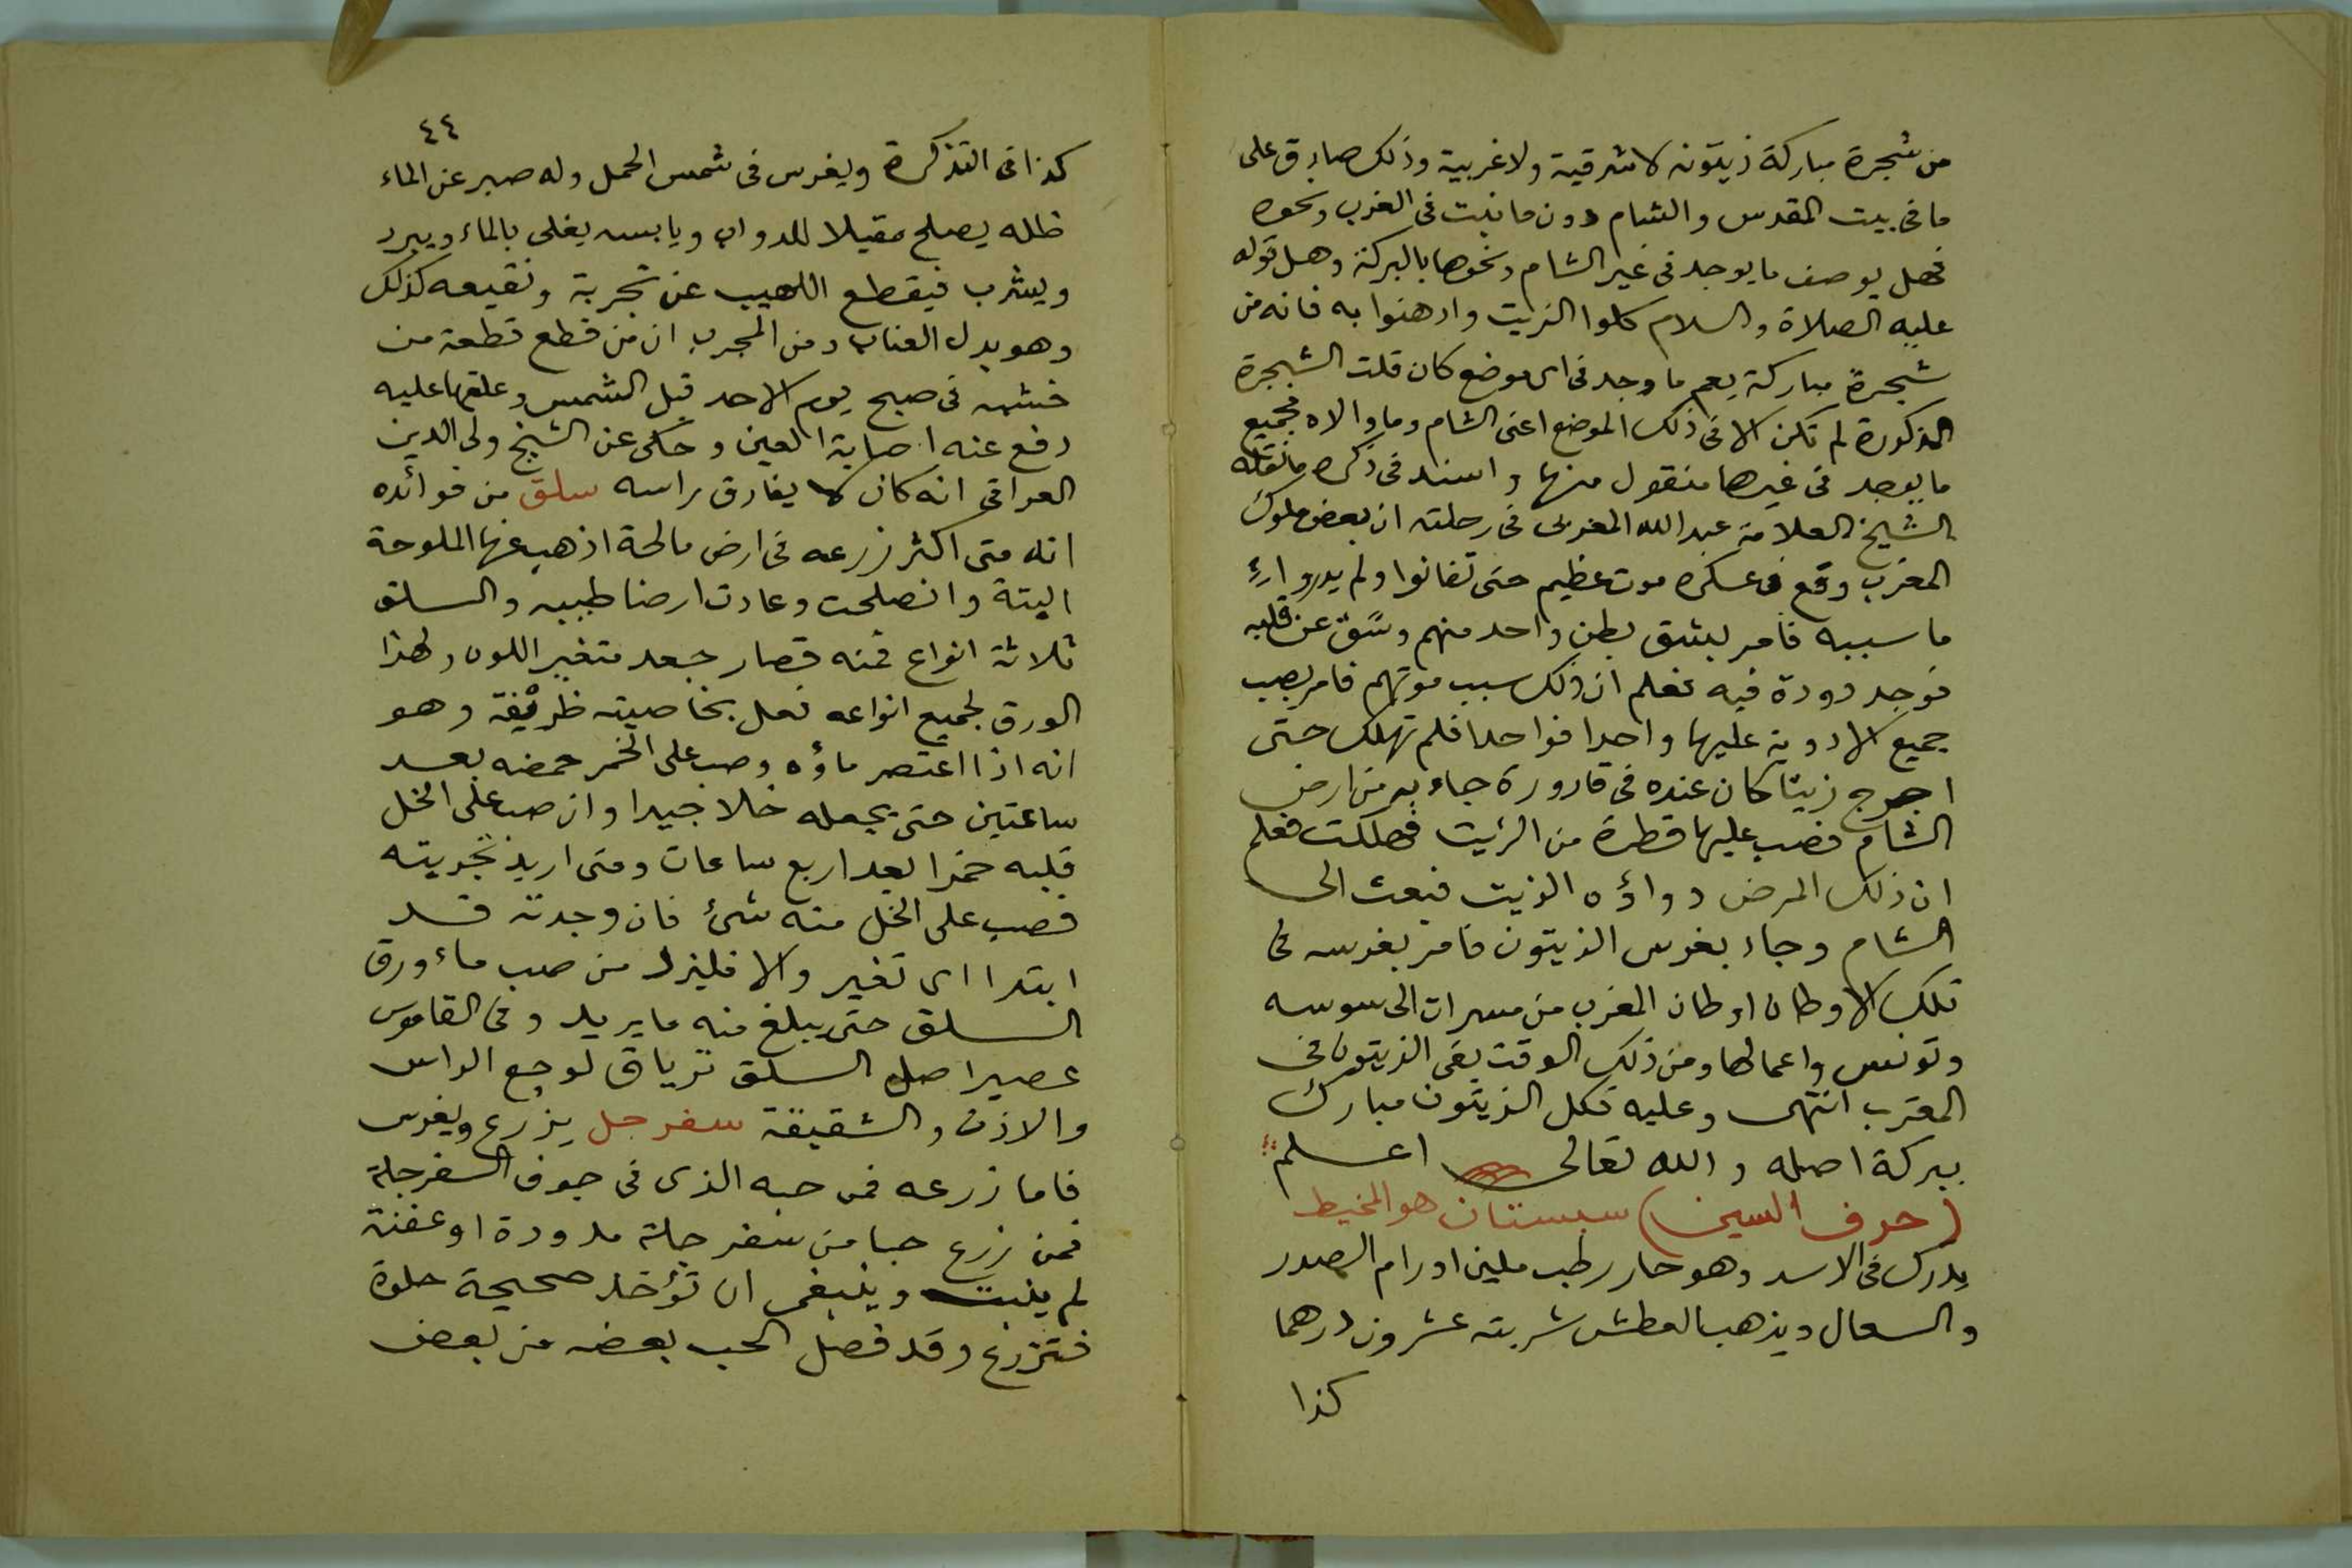 من شجرة مباركة زيتونه لا شرقية ولا غربية وذلك صادق على
ما فى بيت المقدس والشام دون ما نبت فى الغرب ونحوه
فهل يوصف ما يوجد فى غير الشام ونحوها بالبركة وهل قوله
عليه الصلاة والسلام كلوا الزيت وادهنوا به فانه من
شجرة مباركة يعم ما وجد فى اى موضع كان قلت الشجرة
المذكورة لم تكن الا فى ذلك الموضع اعنى الشام وما والاه فجميع
ما يوجد فى غيرها منقول منها واسند فى ذكره ما نقله
الشيخ العلامة عبد الله المغربى فى رحلته ان بعض ملوك
المغرب وقع فى عسكره موت عظيم حتى تفانوا ولم يدر
ما سببه فامر بشق بطن واحد منهم وشق عن قلبه
فوجد دودة فيه فعلم ان ذلك سبب موتهم فامر بصب
جميع الادوية عليها واحدا فواحدا فلم تهلك حتى
اخرج زيتا كان عنده فى قارورة جاء به من ارض
الشام فصب عليها قطرة من الزيت فهلكت فعلم
ان ذلك المرض دواؤه الزيت فبعث الى
الشام وجاء بغرس الزيتون فامر بغرسه فى
تلك الاوطان اوطان المغرب من مسرات الى سوسه
وتونس واعمالها ومن ذلك الوقت بقى الزيتون فى
المغرب انتهى وعليه فكل الزيتون مبارك
ببركة اصله والله تعالى اعلم
(حرف السين) سبستان هو المخيط
يدرك فى الاسد وهو حار رطب ملين اورام الصدر
والسعال ويذهب العطش شربته عشرون درهما
كذا
٤٤
كذا فى التذكرة ويغرس فى شمس الحمل وله صبر عن الماء
ظله يصلح مقيلا للدواب ويابسه يغلى بالماء ويبرد
ويشرب فيقطع اللهيب عن تجربة ونقيعه كذلك
وهو بدل العناب ومن المجرب ان من قطع قطعة من
خشبه فى صبح يوم الاحد قبل الشمس وعلقها عليه
دفع عنه اصابة العين وحكى عن الشيخ ولى الدين
العراقى انه كان لا يفارق راسه سلق من فوائده
انه متى اكثر زرعه فى ارض مالحة اذهب عنها الملوحة
البتة وانصلحت وعادت ارضا طيبه والسلق
ثلاثة انواع فمنه قصار جعد متغير اللون ولهذا
الورق لجميع انواعه فعل بخاصيته ظريفة وهو
انه اذا اعتصر ماؤه وصب على الخمر حمضه بعد
ساعتين حتى يجعله خلا جيدا وان صب على الخل
قلبه خمرا بعد اربع ساعات ومتى اريد تجربته
فصب على الخل منه شئ فان وجدته قد
ابتدا اى تغير والا فليزد من صب ماء ورق
السلق حتى يبلغ منه ما يريد وفى القاموس
عصير اصل السلق ترياق لوجع الراس
والاذن والشقيقة سفرجل يزرع ويغرس
فاما زرعه فمن حبه الذى فى جوف السفرجلة
فمن زرع حبا من سفرجلة مدودة او عفنة
لم ينبت وينبغى ان تؤخذ صحيحة حلوة
فتزرع وقد فصل الحب بعضه من بعض